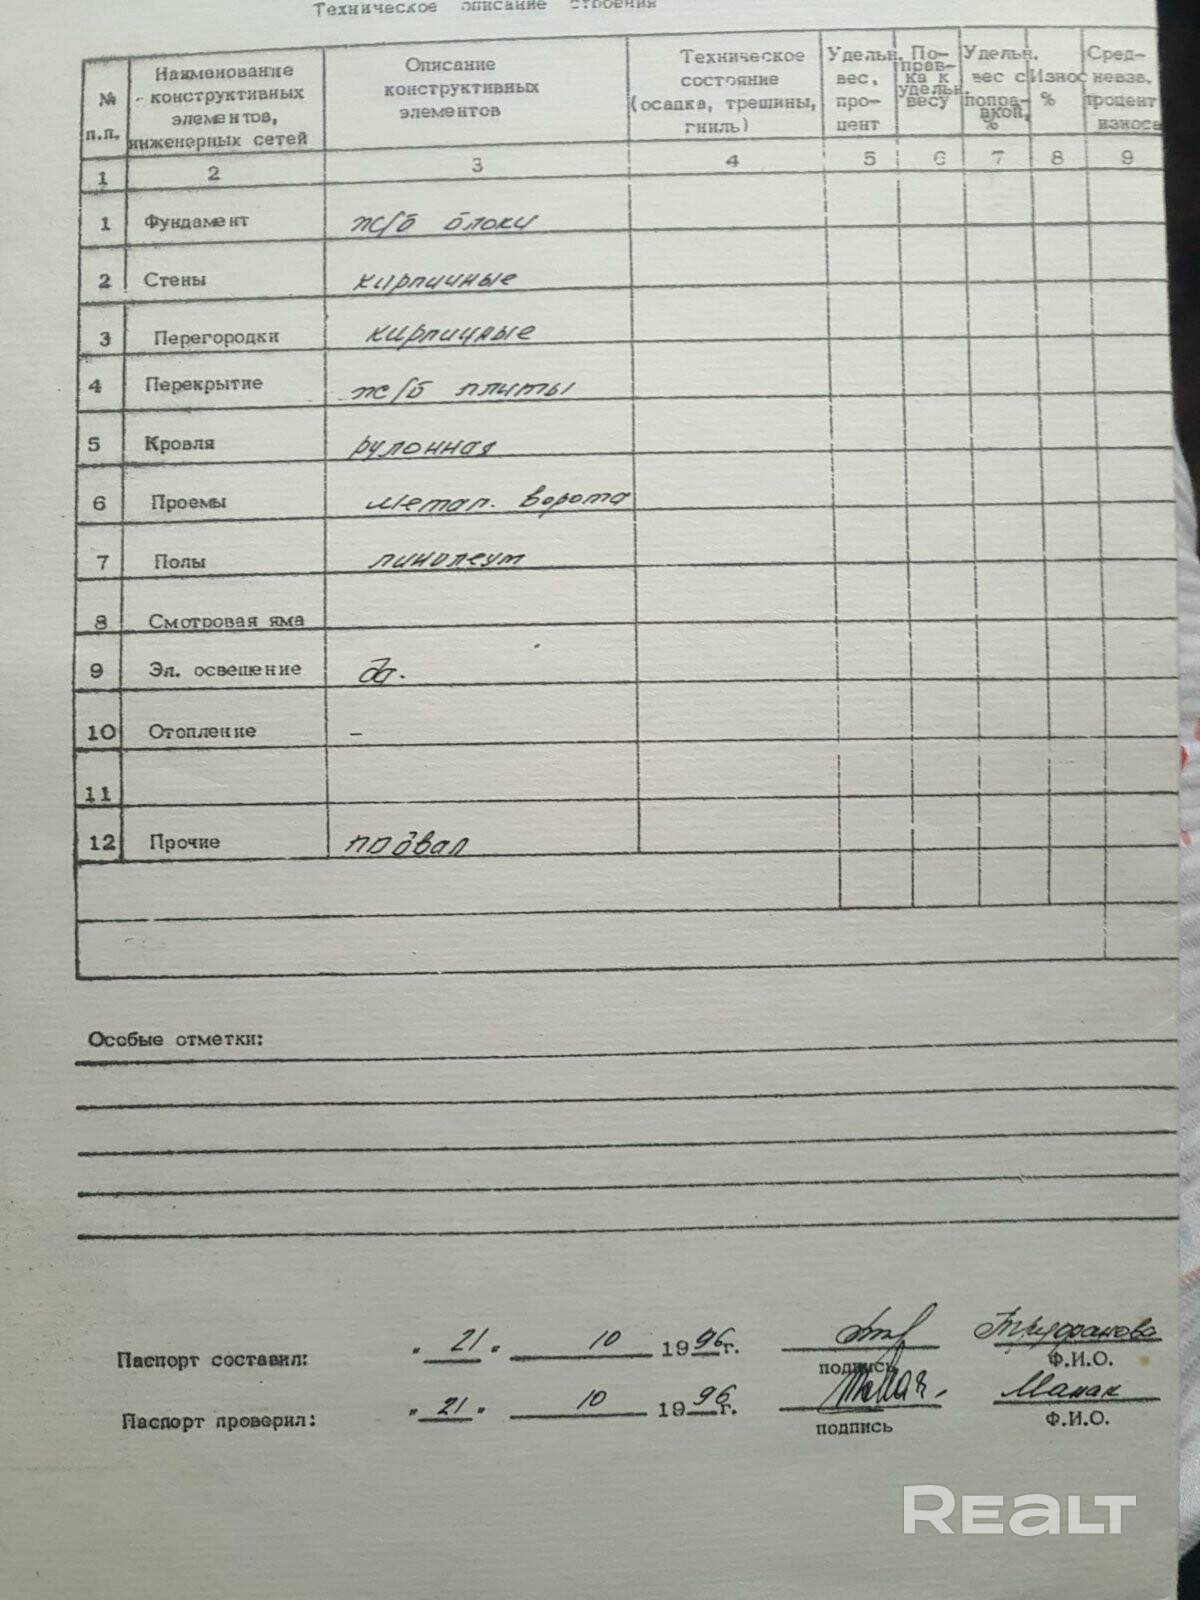 Техническое описание строения
№ п.п.
Наименование конструктивных элементов, инженерных сетей
Описание конструктивных элементов
Техническое состояние (осадка, трещины, гниль)
Удельн. вес, про- цент
По- прав- ка к удельн. весу
Удельн. вес с поправ- кой, %
Износ %
Сред- невзв. процент износа
1 2 3 4 5 6 7 8 9
1 Фундамент ж/б блоки
2 Стены кирпичные
3 Перегородки кирпичные
4 Перекрытие ж/б плиты
5 Кровля рулонная
6 Проемы метал. ворота
7 Полы линолеум
8 Смотровая яма
9 Эл. освещение да.
10 Отопление –
11
12 Прочие подвал
Особые отметки:
Паспорт составил: "21" 10 1996г.
подпись Ф.И.О.
Паспорт проверил: "21" 10 1996г. Манак
подпись Ф.И.О.
REALT